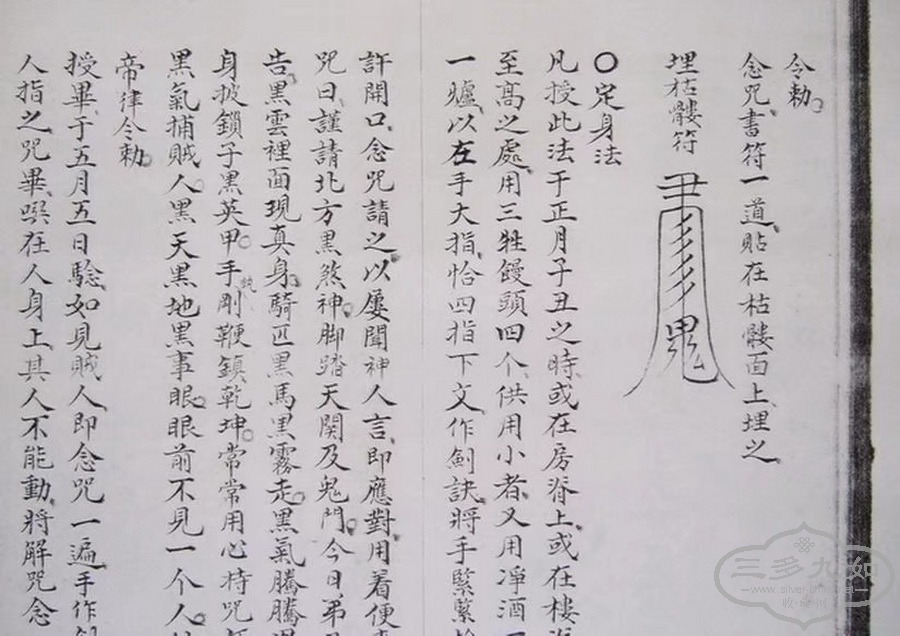 令勅。
念咒、書符一道、貼在枯髏面上、埋之、
埋枯髏符
〇定身法
凡授此法于正月子丑之時、或在房脊上、或在樓
至高之處、用三牲饅頭四个、供用小者、又用凈酒
一爐、以左手大指、恰四指下文、作劍訣、將手緊緊
許開口、念咒請之、以屡聞神人言、即應對、用着便
咒曰、謹請北方黑煞神。脚踏天関及鬼門。今日弟
告。黑雲裡面現真身。騎匹黑馬黑霧走。黑氣騰騰
身披鎖子黑英甲。手執剛鞭鎮乾坤。常常用心持咒
黑氣捕賊人。黑天黑地黑事眼。眼前不見一个人。
帝律令勅。
授畢、于五月五日驗、如見賊人、即念咒一遍、手作劍
人指之、咒畢、唳在人身上、其人不能動、將解咒念
三多九如
www.silver
收·藏·網